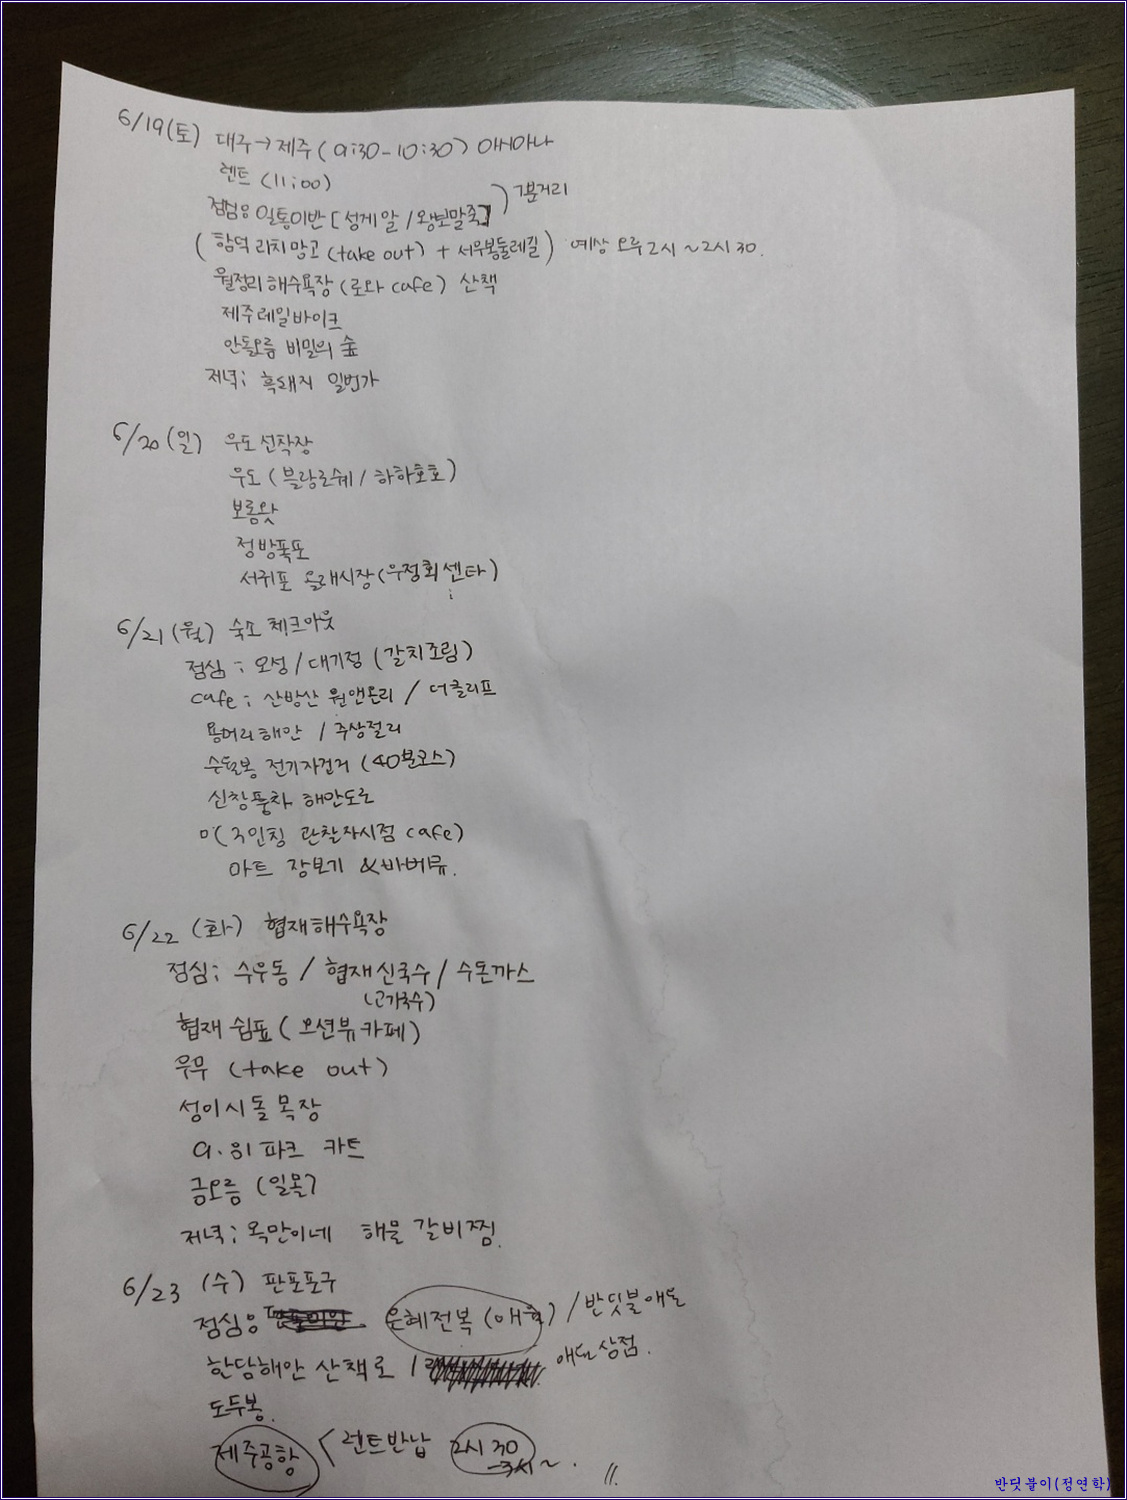 6/19(토) 대구→제주 (9:30-10:30) 아시아나
렌트 (11:00)
점심: 일통이반 [성게알 / 왕보말죽] 7분거리
(함덕 리치망고 (take out) + 서우봉둘레길) 예상 오후 2시~2시 30.
월정리 해수욕장 (로와 cafe) 산책
제주레일바이크
안돌오름 비밀의 숲
저녁: 흑돼지 일번가
6/20 (일) 우도 선착장
우도 (블랑로쉐 / 하하호호)
보롬왓
정방폭포
서귀포 올래시장 (우정회센타)
6/21 (월) 숙소 체크아웃
점심: 오성 / 대기정 (갈치조림)
cafe: 산방산 원앤온리 / 더클리프
용머리해안 / 주상절리
수월봉 전기자전거 (40분코스)
신창풍차 해안도로
(3인칭 관찰자시점 cafe)
마트 장보기 & 바베큐.
6/22 (화) 협재해수욕장
점심: 수우동 / 협재신국수 / 수돈까스
(고기국수)
협재 쉼표 (오션뷰카페)
우무 (take out)
성이시돌 목장
9.81 파크 카트
금오름 (일몰)
저녁: 옥만이네 해물 갈비찜.
6/23 (수) 판포포구
점심: 은혜전복 (애월) / 반딧불애월
한담해안 산책로 / 애월상점.
도두봉.
제주공항 < 렌트반납 2시 30
-3시 ~. //.
반딧불이(정연학)